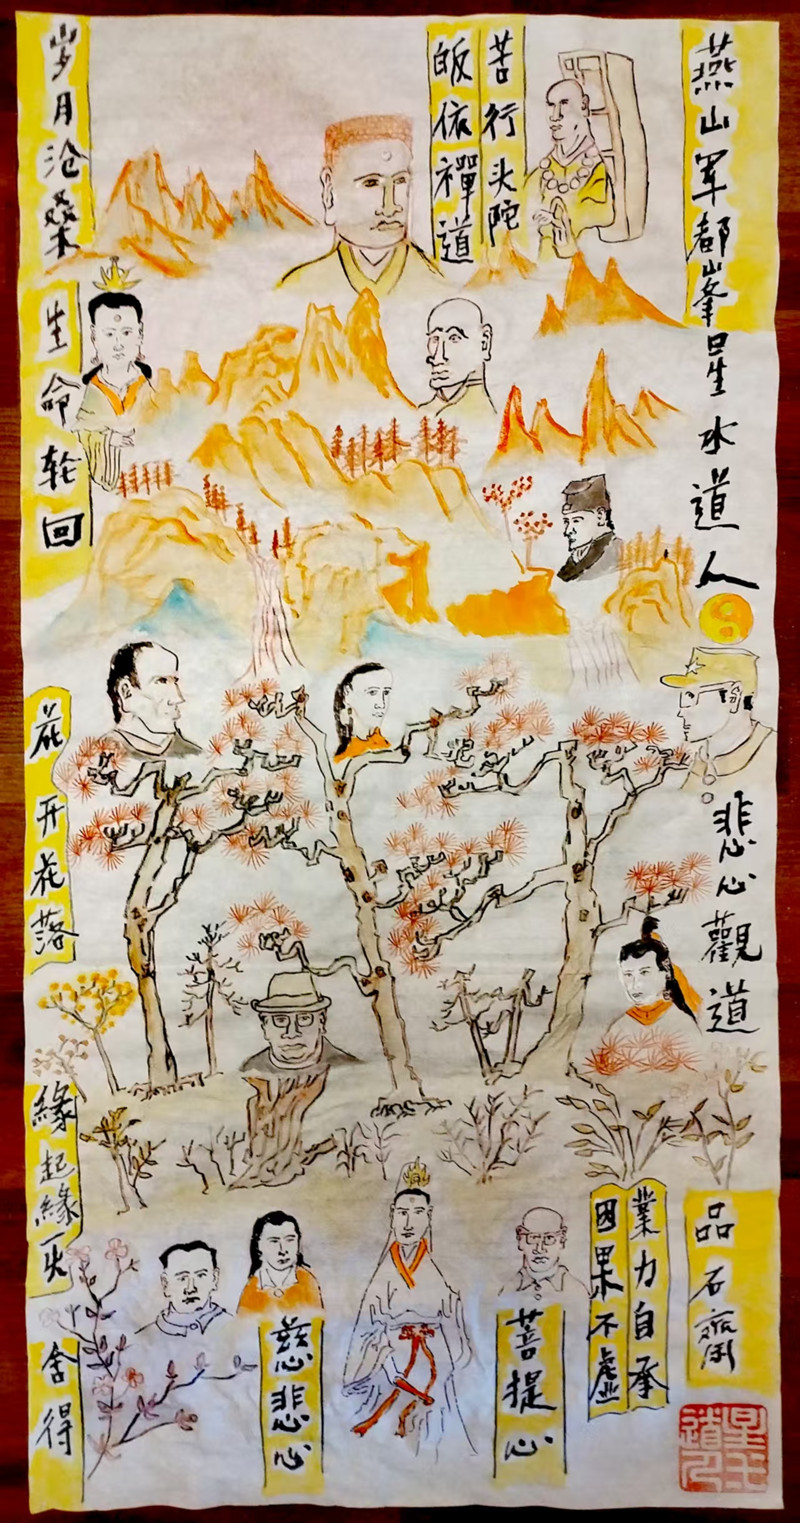 燕山军都山峯星水道人
悲心觀道
品石齋
苦行头陀
皈依禪道
岁月沧桑
生命轮回
花开花落
緣起緣灭
舍得
慈悲心
菩提心
業力自承
因果不虛